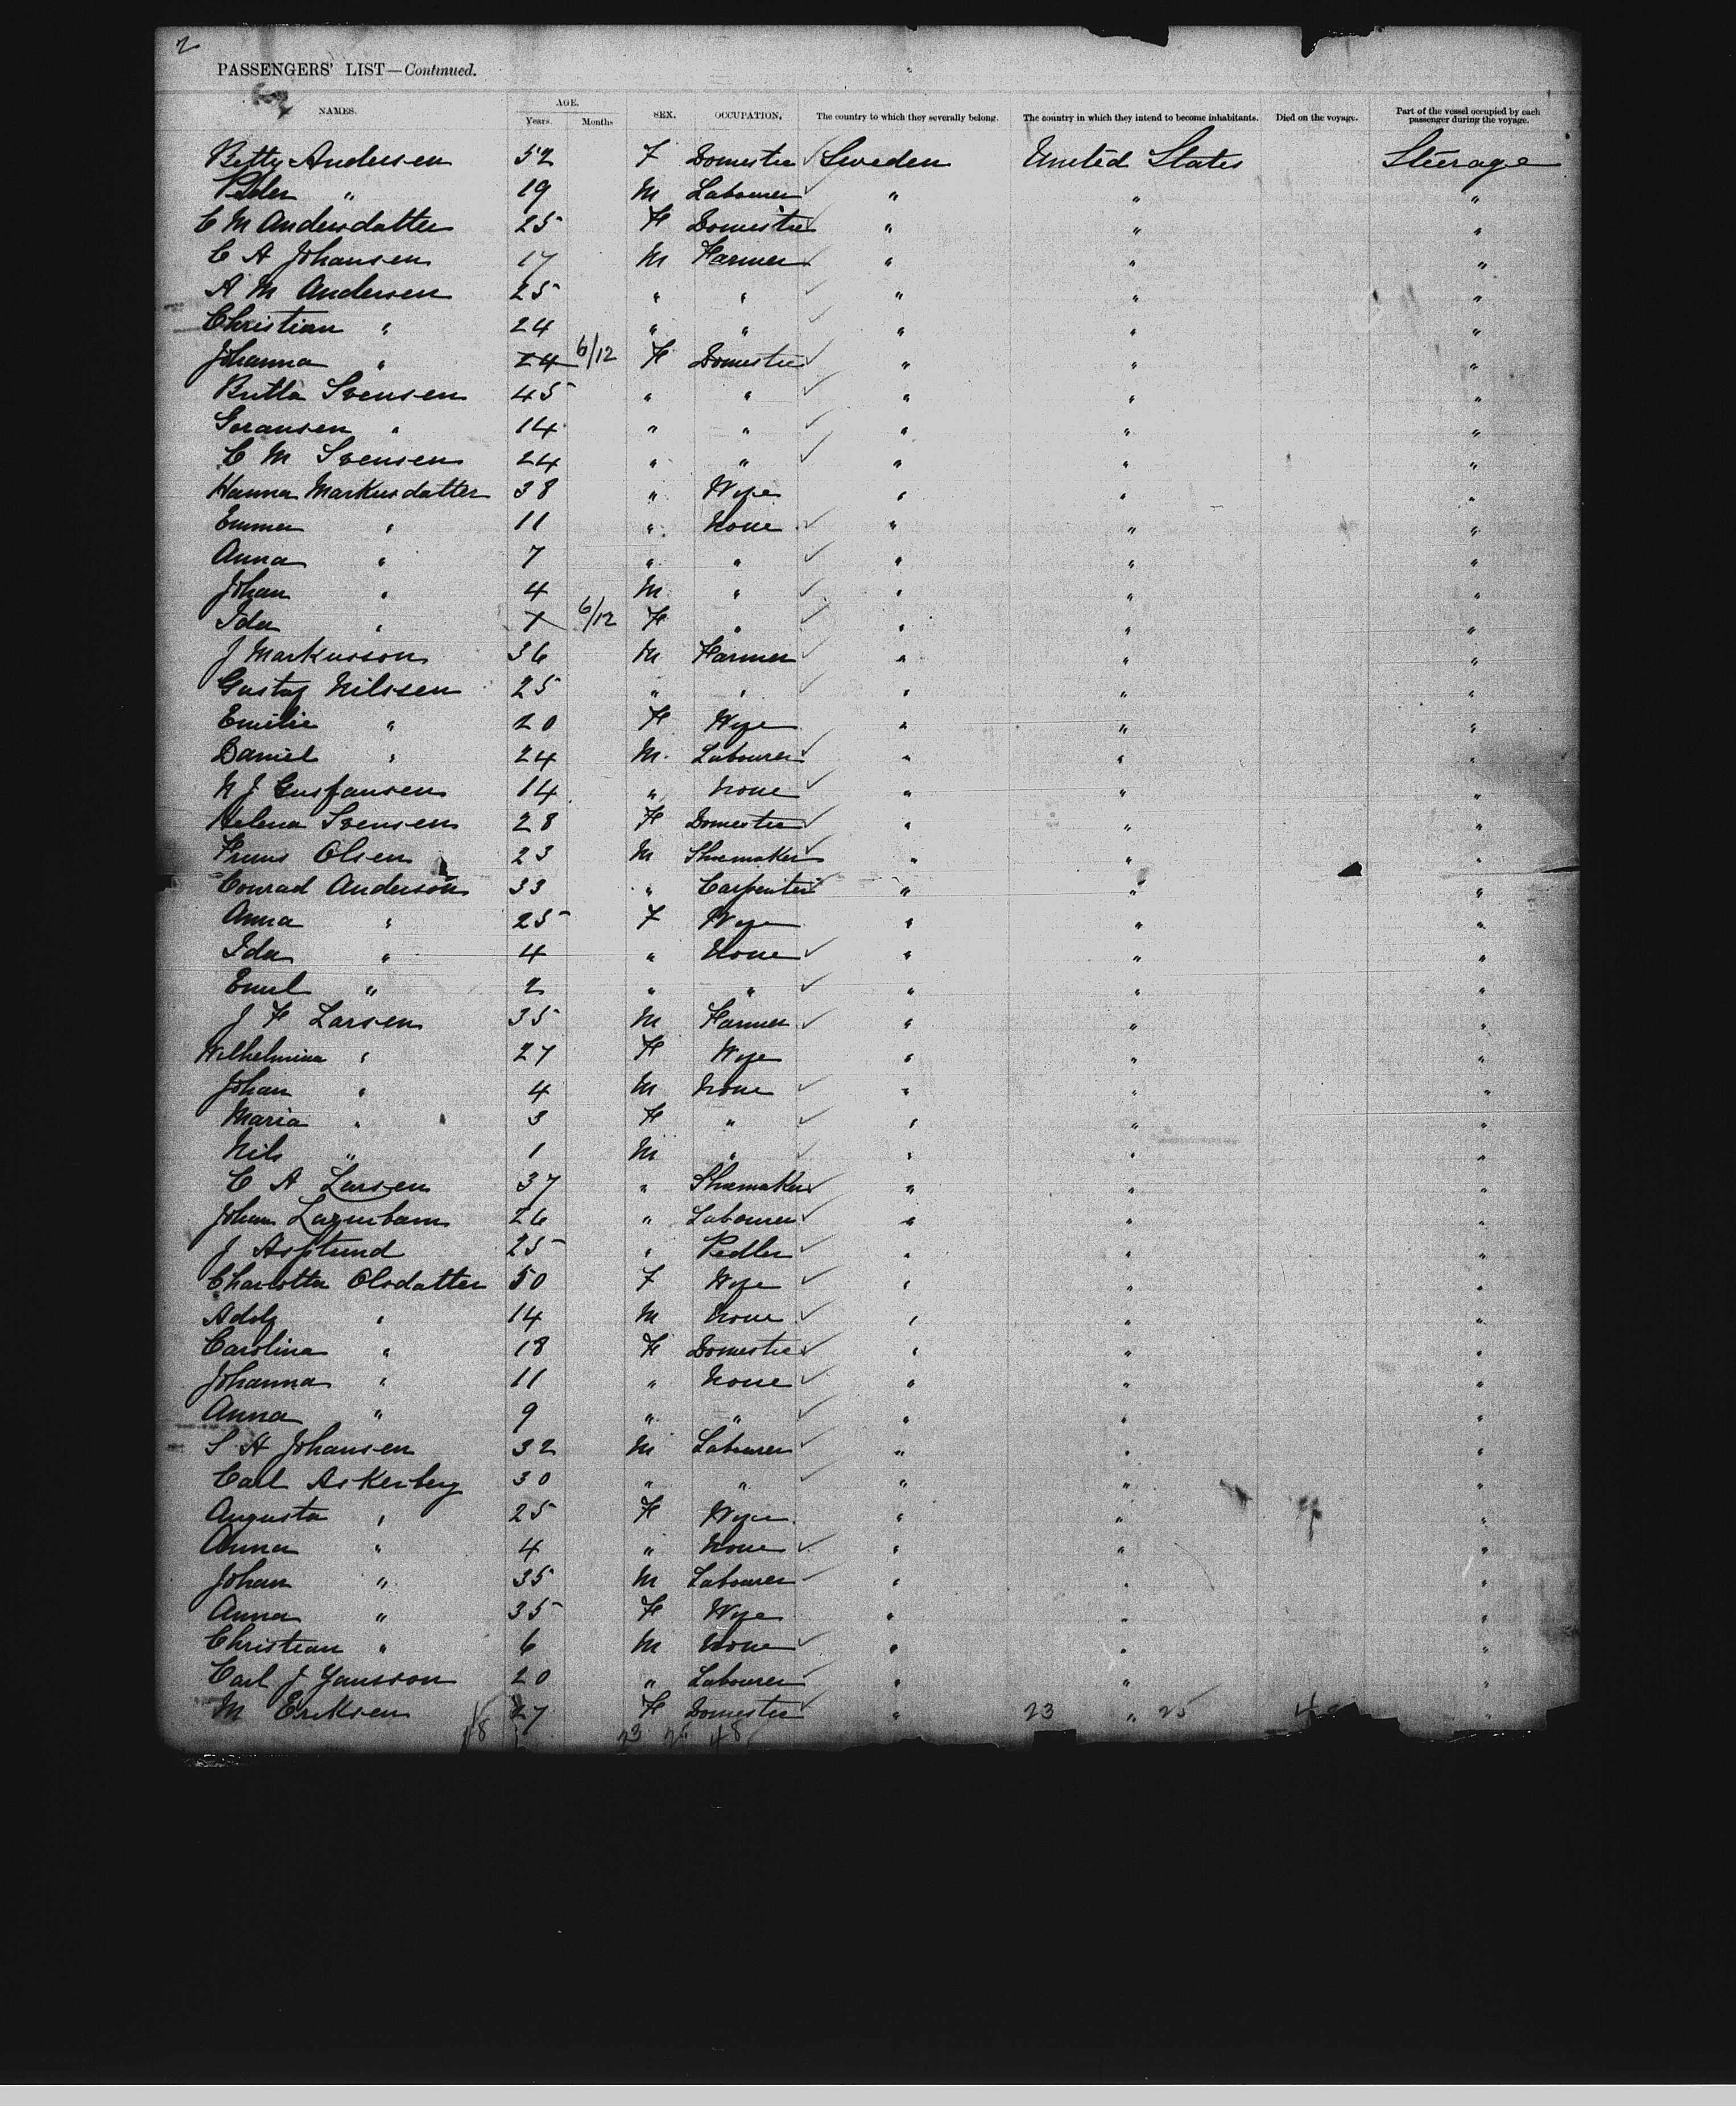 2
PASSENGERS' LIST—Continued.
NAMES. AGE. Years. Months SEX. OCCUPATION, The country to which they severally belong. The country in which they intend to become inhabitants. Died on the voyage. Part of the vessel occupied by each passenger during the voyage.
Betty Andersen 52 F Domestic ✓ Sweden United States Steerage
Peder " 19 M Labourer ✓ " " "
C M Andersdatter 25 F Domestic ✓ " " "
C A Johansen 17 M Farmer ✓ " " "
A M Andersen 25 " " ✓ " " "
Christian " 24 " " ✓ " " "
Johanna " 24 6/12 F Domestic ✓ " " "
Britta Svensen 45 " " ✓ " " "
Goransen " 14 " " ✓ " " "
C M Svensen 24 " " ✓ " " "
Hanna Markusdatter 38 " Wife " " "
Emma " 11 " None ✓ " " "
Anna " 7 " " ✓ " " "
Johan " 4 M " ✓ " " "
Ida " 6/12 F " ✓ " " "
J Markusson 36 M Farmer ✓ " " "
Gustaf Nilssen 25 " " ✓ " " "
Emilie " 20 F Wife " " "
Daniel " 24 M. Labourer ✓ " " "
N J Gusfansen 14 " None ✓ " " "
Helena Svensen 28 F Domestic ✓ " " "
Olsen 23 M Shoemaker ✓ " " "
Conrad Anderson 33 " Carpenter ✓ " " "
Anna " 25 F Wife " " "
Ida " 4 " None ✓ " " "
Emil " 2 " " ✓ " " "
J F Larsen 35 M Farmer ✓ " " "
Wilhelmina " 27 F Wife " " "
Johan " 4 M None ✓ " " "
Maria " 3 F " ✓ " " "
Nils " 1 M " ✓ " " "
C A Larsen 37 " Shoemaker ✓ " " "
Johan 26 " Labourer ✓ " " "
J Asplund 25 " Pedler ✓ " " "
Charlotta Olsdatter 50 F Wife ✓ " " "
Adolf " 14 M None ✓ " " "
Carolina " 18 F Domestic ✓ " " "
Johanna " 11 " None ✓ " " "
Anna " 9 " " ✓ " " "
S H Johansen 32 M Labourer ✓ " " "
Carl Askerberg 30 " " ✓ " " "
Augusta " 25 F Wife " " "
Anna " 4 " None ✓ " " "
Johan " 35 M Labourer " " "
Anna " 35 F Wife " " "
Christian " 6 M None ✓ " " "
Carl J Yansson 20 " Labourer ✓ " " "
M Eriksen 27 F Domestic ✓ " 23 " 25 "
48 23 25 48